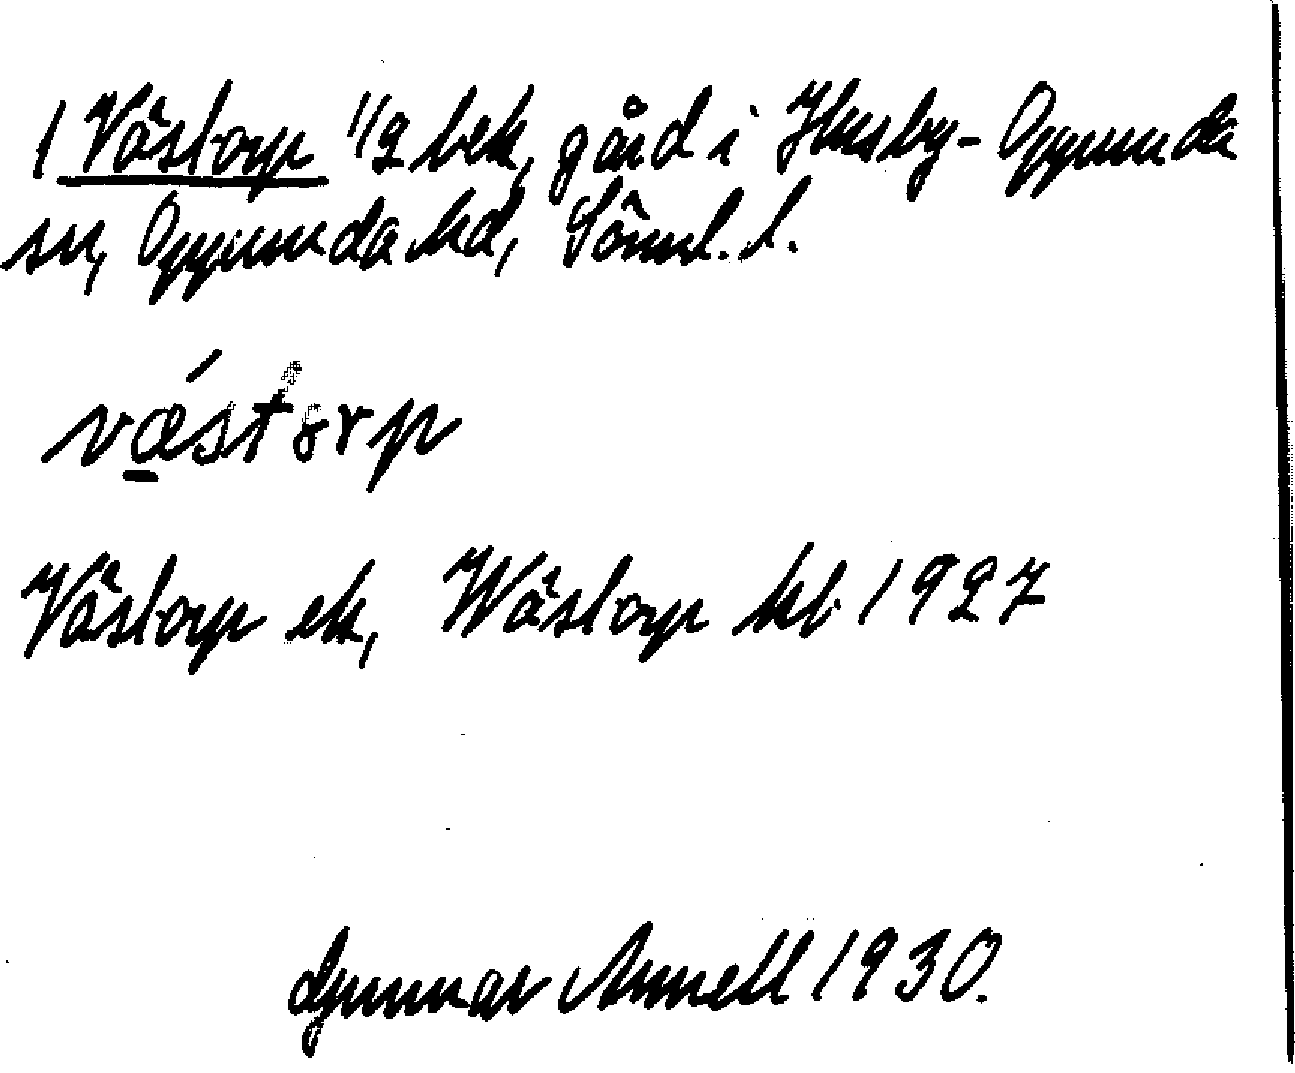 1 Västorp 1/2 bek, gård i Husby-Oppunda
sn, Oppunda hd, Söml. l.
vǽ̠stærp
Västorp ek, Wästorp kb 1927
Gunnar Annell 1930.